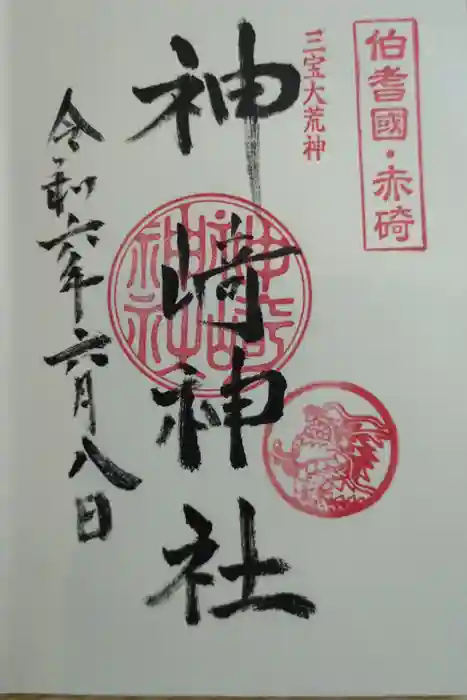 伯耆國・赤碕
三宝大荒神
神﨑神社
神﨑神社
令和六年六月八日